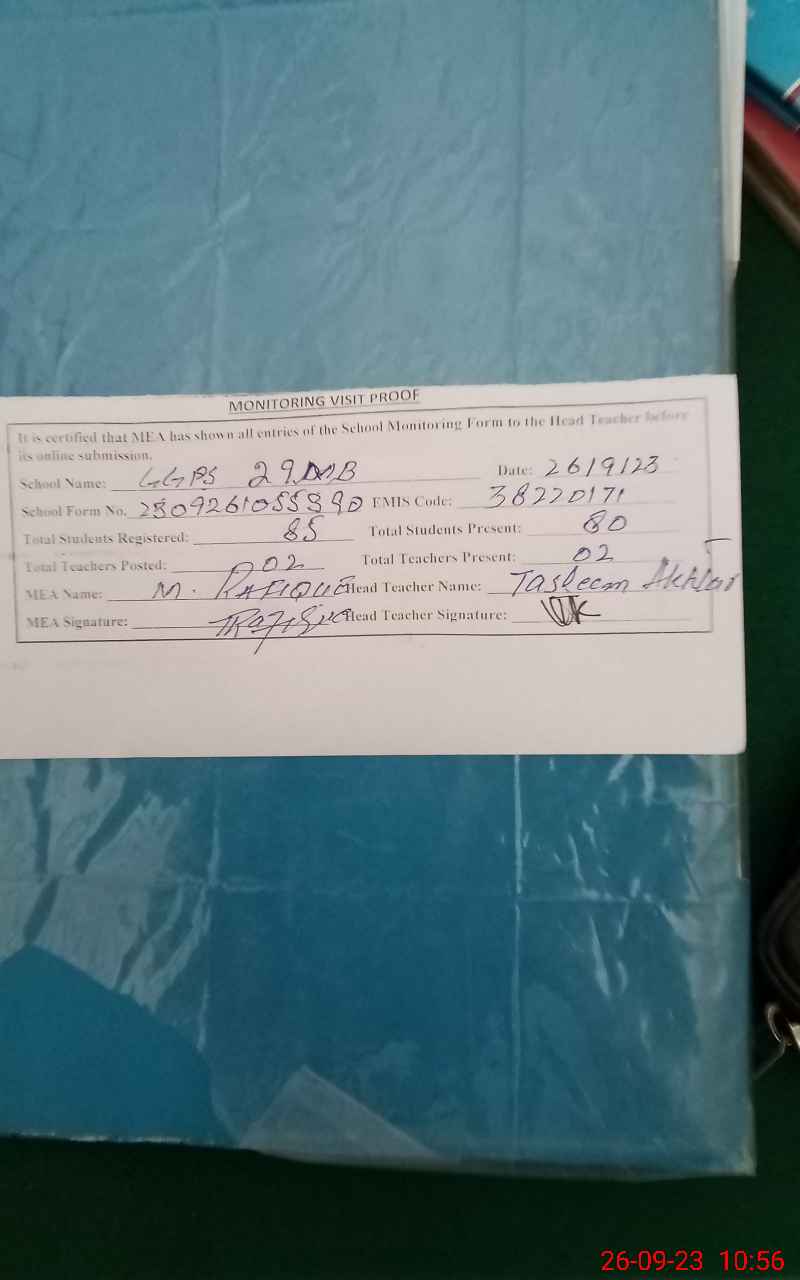 MONITORING VISIT PROOF
It is certified that MEA has shown all entries of the School Monitoring Form to the Head Teacher before
its online submission.
School Name: GGPS 29 DNB Date: 26/9/23
School Form No. EMIS Code: 38220171
Total Students Registered: 85 Total Students Present: 80
Total Teachers Posted: 02 Total Teachers Present: 02
MEA Name: M. RAFIQUE Head Teacher Name: Tasleem Akhtar
MEA Signature: Head Teacher Signature:
26-09-23 10:56